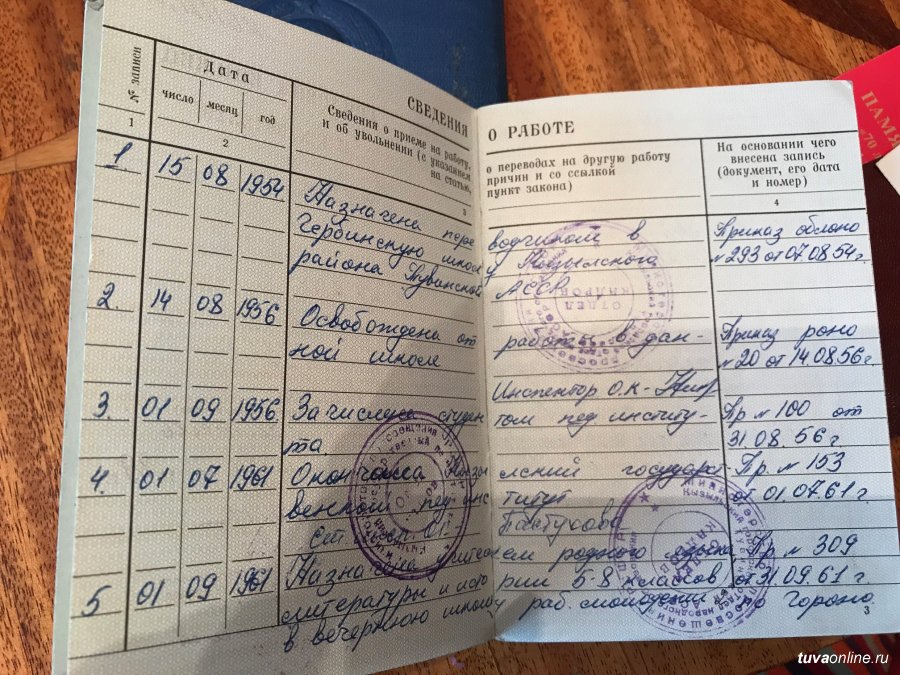 СВЕДЕНИЯ О РАБОТЕ
№ записи
Дата
число
месяц
год
Сведения о приеме на работу,
и об увольнении (с указанием
на статью,
о переводах на другую работу
причин и со ссылкой
пункт закона)
На основании чего
внесена запись
(документ, его дата
и номер)
1
2
3
4
1 15 08 1954 Назначена пере водчицой в Приказ облоно
Чербинскую школу Кызылского №293 от 07.08.54 г.
района Тувинской АССР
2. 14 08 1956 Освобождена от работы в дан- Приказ роно
ной школе №20 от 14.08.56 г.
Инспектор О.К.
3. 01 09 1956 Зачислена студен том пед институ- Пр № 100 от
та. 31.08.56 г.
4. 01 07 1961 Окончила государст Пр. № 153
пед инс титут от 01.07.61 г.
5 01 09 1961 Назначена учителем родного языка Пр № 309
литературы и исто рии 5-8 классов от 31.09.61 г.
в вечернюю школу раб. молодежи по Гороно.
3
ОТДЕЛ
КАДРОВ
ПАМЯ
70
tuvaonline.ru